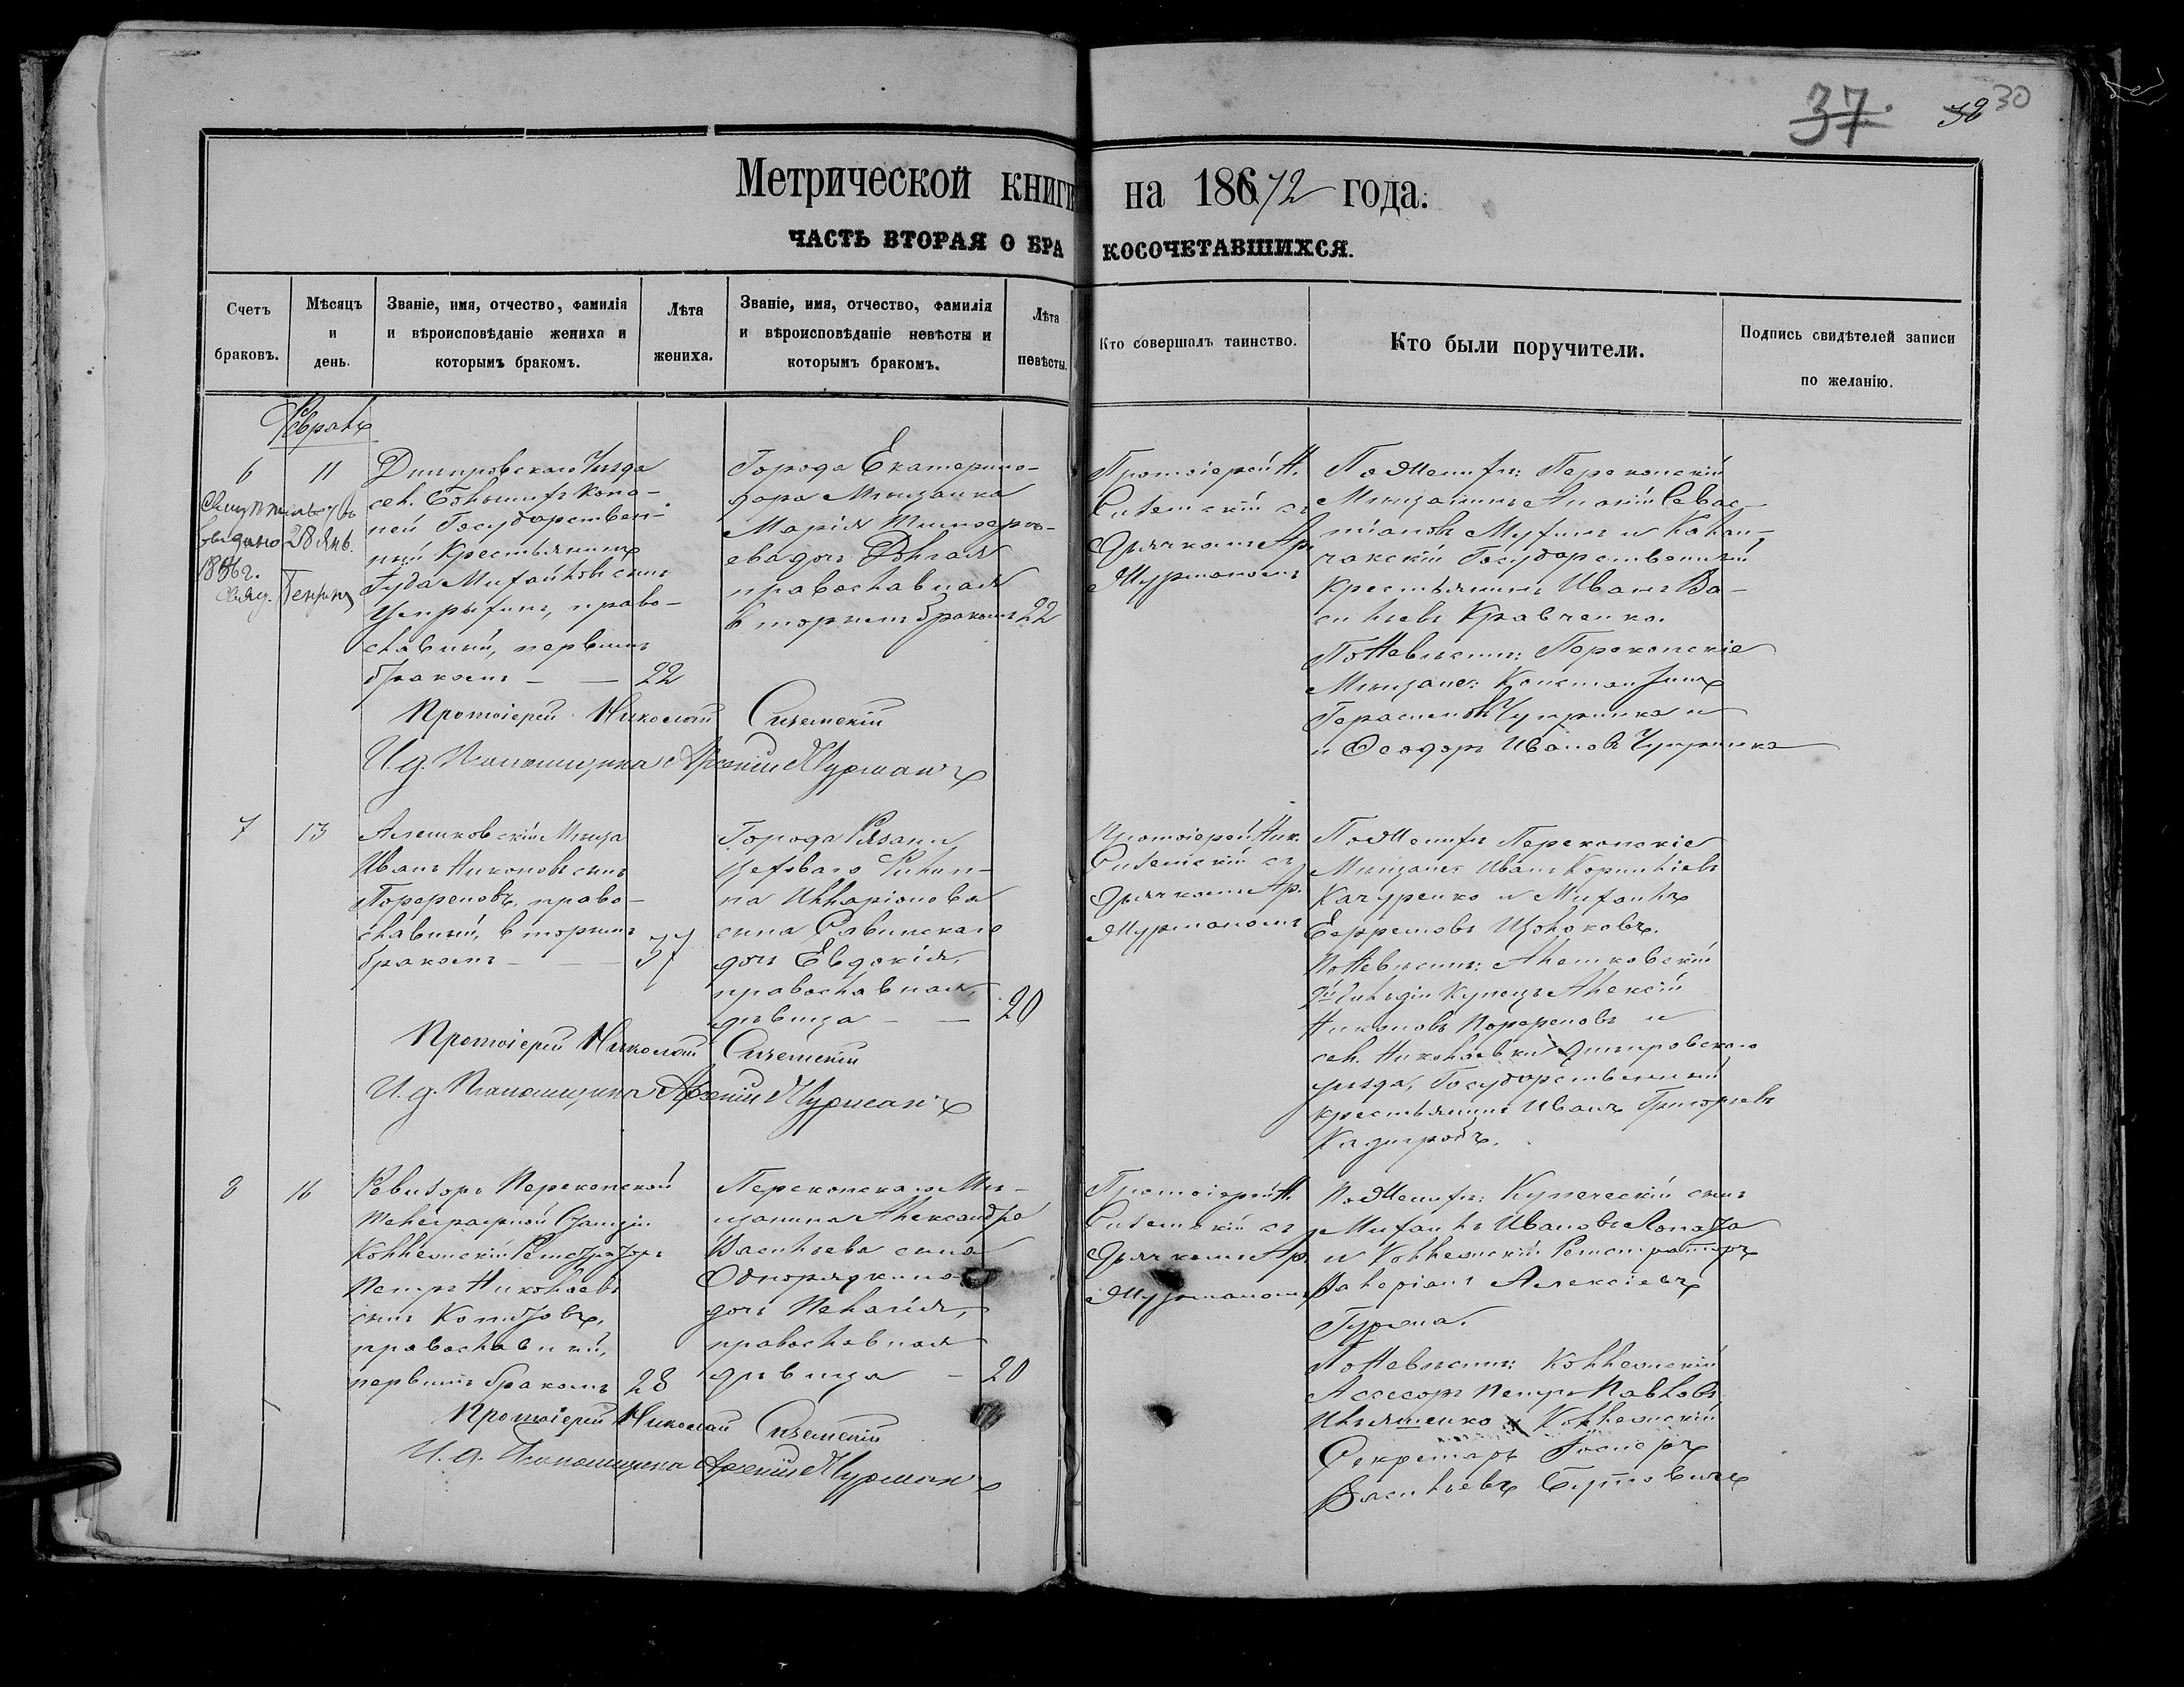 37. 32 30
Метрической книги на 18672 года.
ЧАСТЬ ВТОРАЯ О БРАКОСОЧЕТАВШИХСЯ.
Счетъ браковъ.
Мѣсяцъ и день.
Званіе, имя, отчество, фамилія
и вѣроисповѣданіе жениха и
которымъ бракомъ.
Лѣта жениха.
Званіе, имя, отчество, фамилія
и вѣроисповѣданіе невѣсты и
которымъ бракомъ.
Лѣта невѣсты.
Кто совершалъ таинство.
Кто были поручители.
Подпись свидѣтелей записи
по желанію.
Февраль
6
11
28 Янв.
Днепровскаго Уѣзда
сел. Большихъ Копа-
ней Государствен-
ный Крестьянинъ
Гуда Михайловъ сынъ
право-
славный, первымъ
бракомъ — — 22
Города Екатерино-
дара Мѣщанка
Марія
ева дочь Долгая
православная
вторымъ бракомъ 22
Протоіерей Н.
съ
Дьячкомъ Ар.
Мурманомъ
По Женихѣ: Перекопскій
Мѣщанинъ Севас-
тіановъ Мухинъ и Калан-
чакскій Государственный
Крестьянинъ Иванъ Ва-
сильевъ Кравченко.
По Невѣстѣ: Перекопскіе
Мѣщане: Константинъ
Герасимовъ Чупринка и
и Ѳеодоръ Ивановъ Чупринка
Протоіерей Николай
И. д. Пономаря Арсеній Мурманъ
7
13
Алешковскій Мѣща
Иванъ Никоновъ сынъ
Порфреновъ, право-
славный, вторымъ
бракомъ — — 37
Города Рязани
Цеховаго Филип-
па Илларіонова
сына Рявинскаго
дочь Евдокія,
православная,
дѣвица — — 20
Протоіерей Ник.
съ
Дьячкомъ Ар.
Мурманомъ
По Женихѣ Перекопскіе
Мѣщане Иванъ Корниліевъ
Качуренко и Михаилъ
Ефремовъ Щолоковъ.
По Невѣстѣ: Алешковскій
2й Гильдіи Купецъ Алексій
Никоновъ Порфреновъ и
сел. Николаевки Днепровскаго
уѣзда, Государственный
крестьянинъ Иванъ Григорьевъ
Протоіерей Николай
И. д. Пономаря Арсеній Мурманъ
8
16
Ревизоръ Перекопской
Телеграфной Станціи
Коллежскій Регистраторъ
Петръ Николаевъ
сынъ Копытовъ,
православный,
первымъ бракомъ 28
Перекопскаго Мѣ-
щанина Александра
Васильева сына
Однорядкина
дочь Пелагія,
православная
дѣвица — 20
Протоіерей Н.
съ
Дьячкомъ Ар.
Мурманомъ
По Женихѣ: Купеческій сынъ
Михаилъ Ивановъ Лопата
и Коллежскій Регистраторъ
Валеріанъ Алексіевъ
По Невѣстѣ: Коллежскій
Ассесоръ Петръ Павловъ
Ильяшенко и Коллежскій
Секретарь
Васильевъ Бутовичъ
Протоіерей Николай
И. д. Пономаря Арсеній Мурманъ